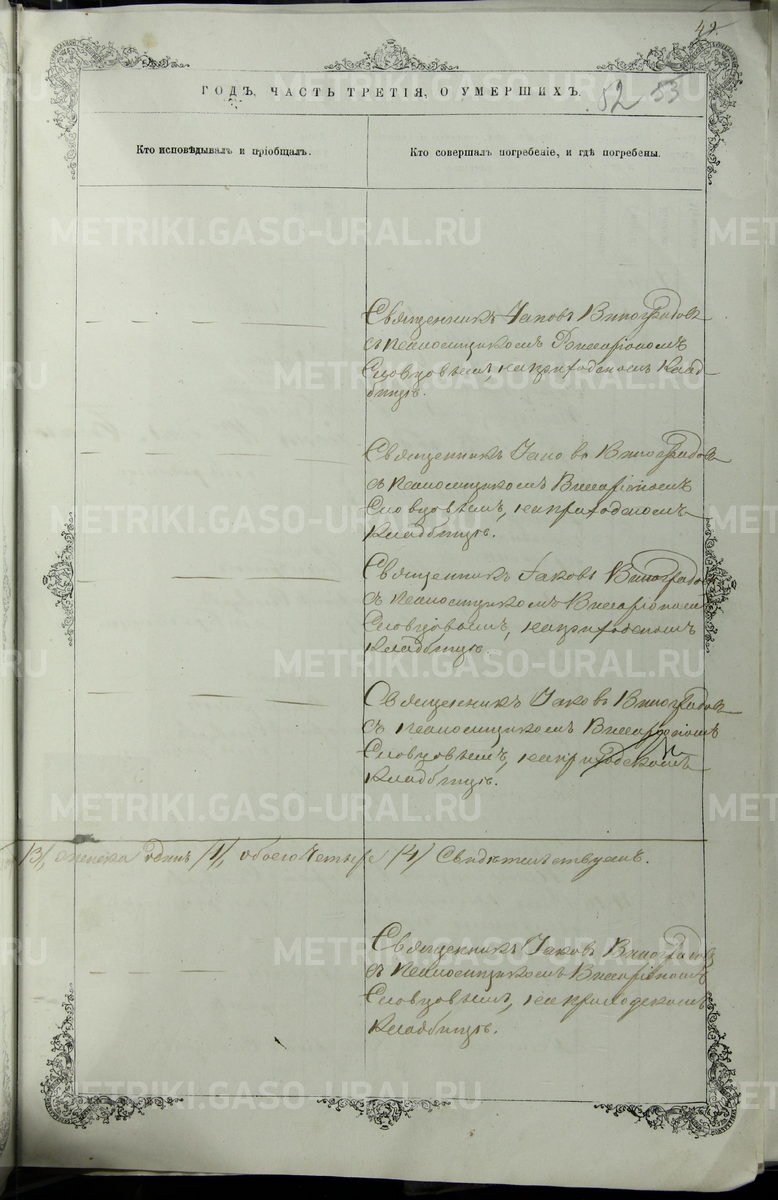 49.
ГОДЪ, ЧАСТЬ ТРЕТІЯ, О УМЕРШИХЪ.
52 53
Кто исповѣдывалъ и пріобщалъ.
Кто совершалъ погребеніе, и гдѣ погребены.
Священникъ Іаковъ Виноградовъ
съ псаломщикомъ
Словцовымъ, на приходскомъ клад-
бищѣ.
Священникъ Іаковъ Виноградовъ
съ псаломщикомъ Виссаріономъ
Словцовымъ, на приходскомъ
кладбищѣ.
Священникъ Іаковъ Виноградовъ
съ псаломщикомъ Виссаріономъ
Словцовымъ, на приходскомъ
кладбищѣ.
Священникъ Іаковъ Виноградовъ
съ псаломщикомъ Виссаріономъ
Словцовымъ, на приходскомъ
кладбищѣ.
/3/, женска одинъ /1/, обоего четыре /4/ Свидѣтельствуемъ.
Священникъ Іаковъ Виноградовъ
съ псаломщикомъ Виссаріономъ
Словцовымъ, на приходскомъ
кладбищѣ.
METRIKI.GASO-URAL.RU